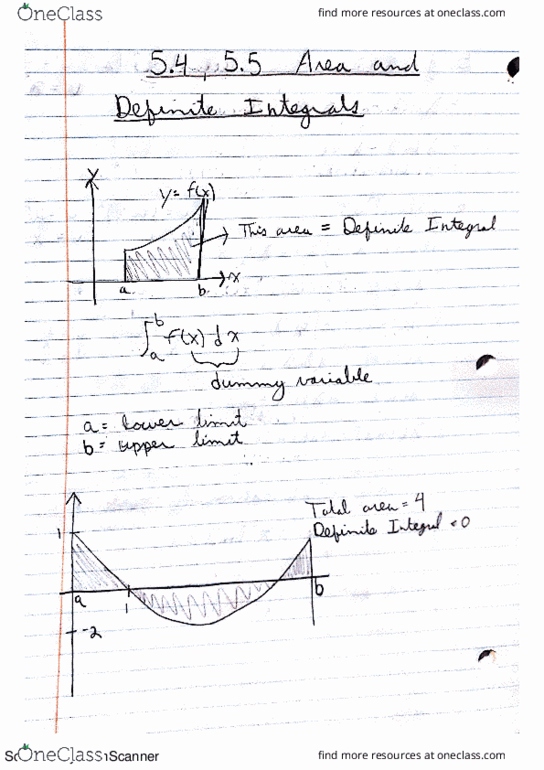 OneClass
find more resources at oneclass.com
5.4, 5.5 Area and
Definite Integrals
y
y = f(x)
This area = Definite Integral
a
b
x
∫_a^b f(x) dx
dummy variable
a = lower limit
b = upper limit
Total area = 4
Definite Integral = 0
1
a
1
b
-2
OneClass
Scanner
find more resources at oneclass.com